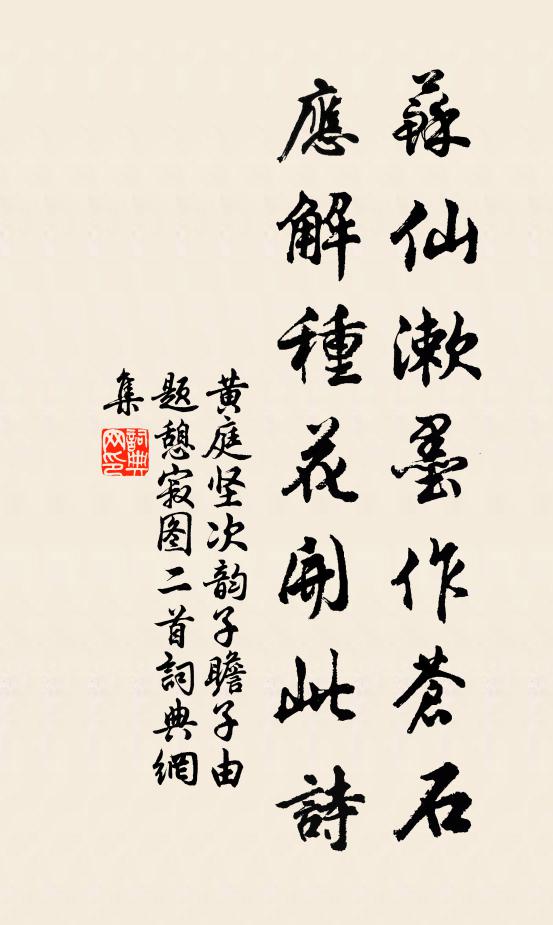 蘇仙漱墨作蒼石
應解種花開此詩
黄庭坚次韵子瞻子由
题憩寂图二首詞典網
集
詞典網印